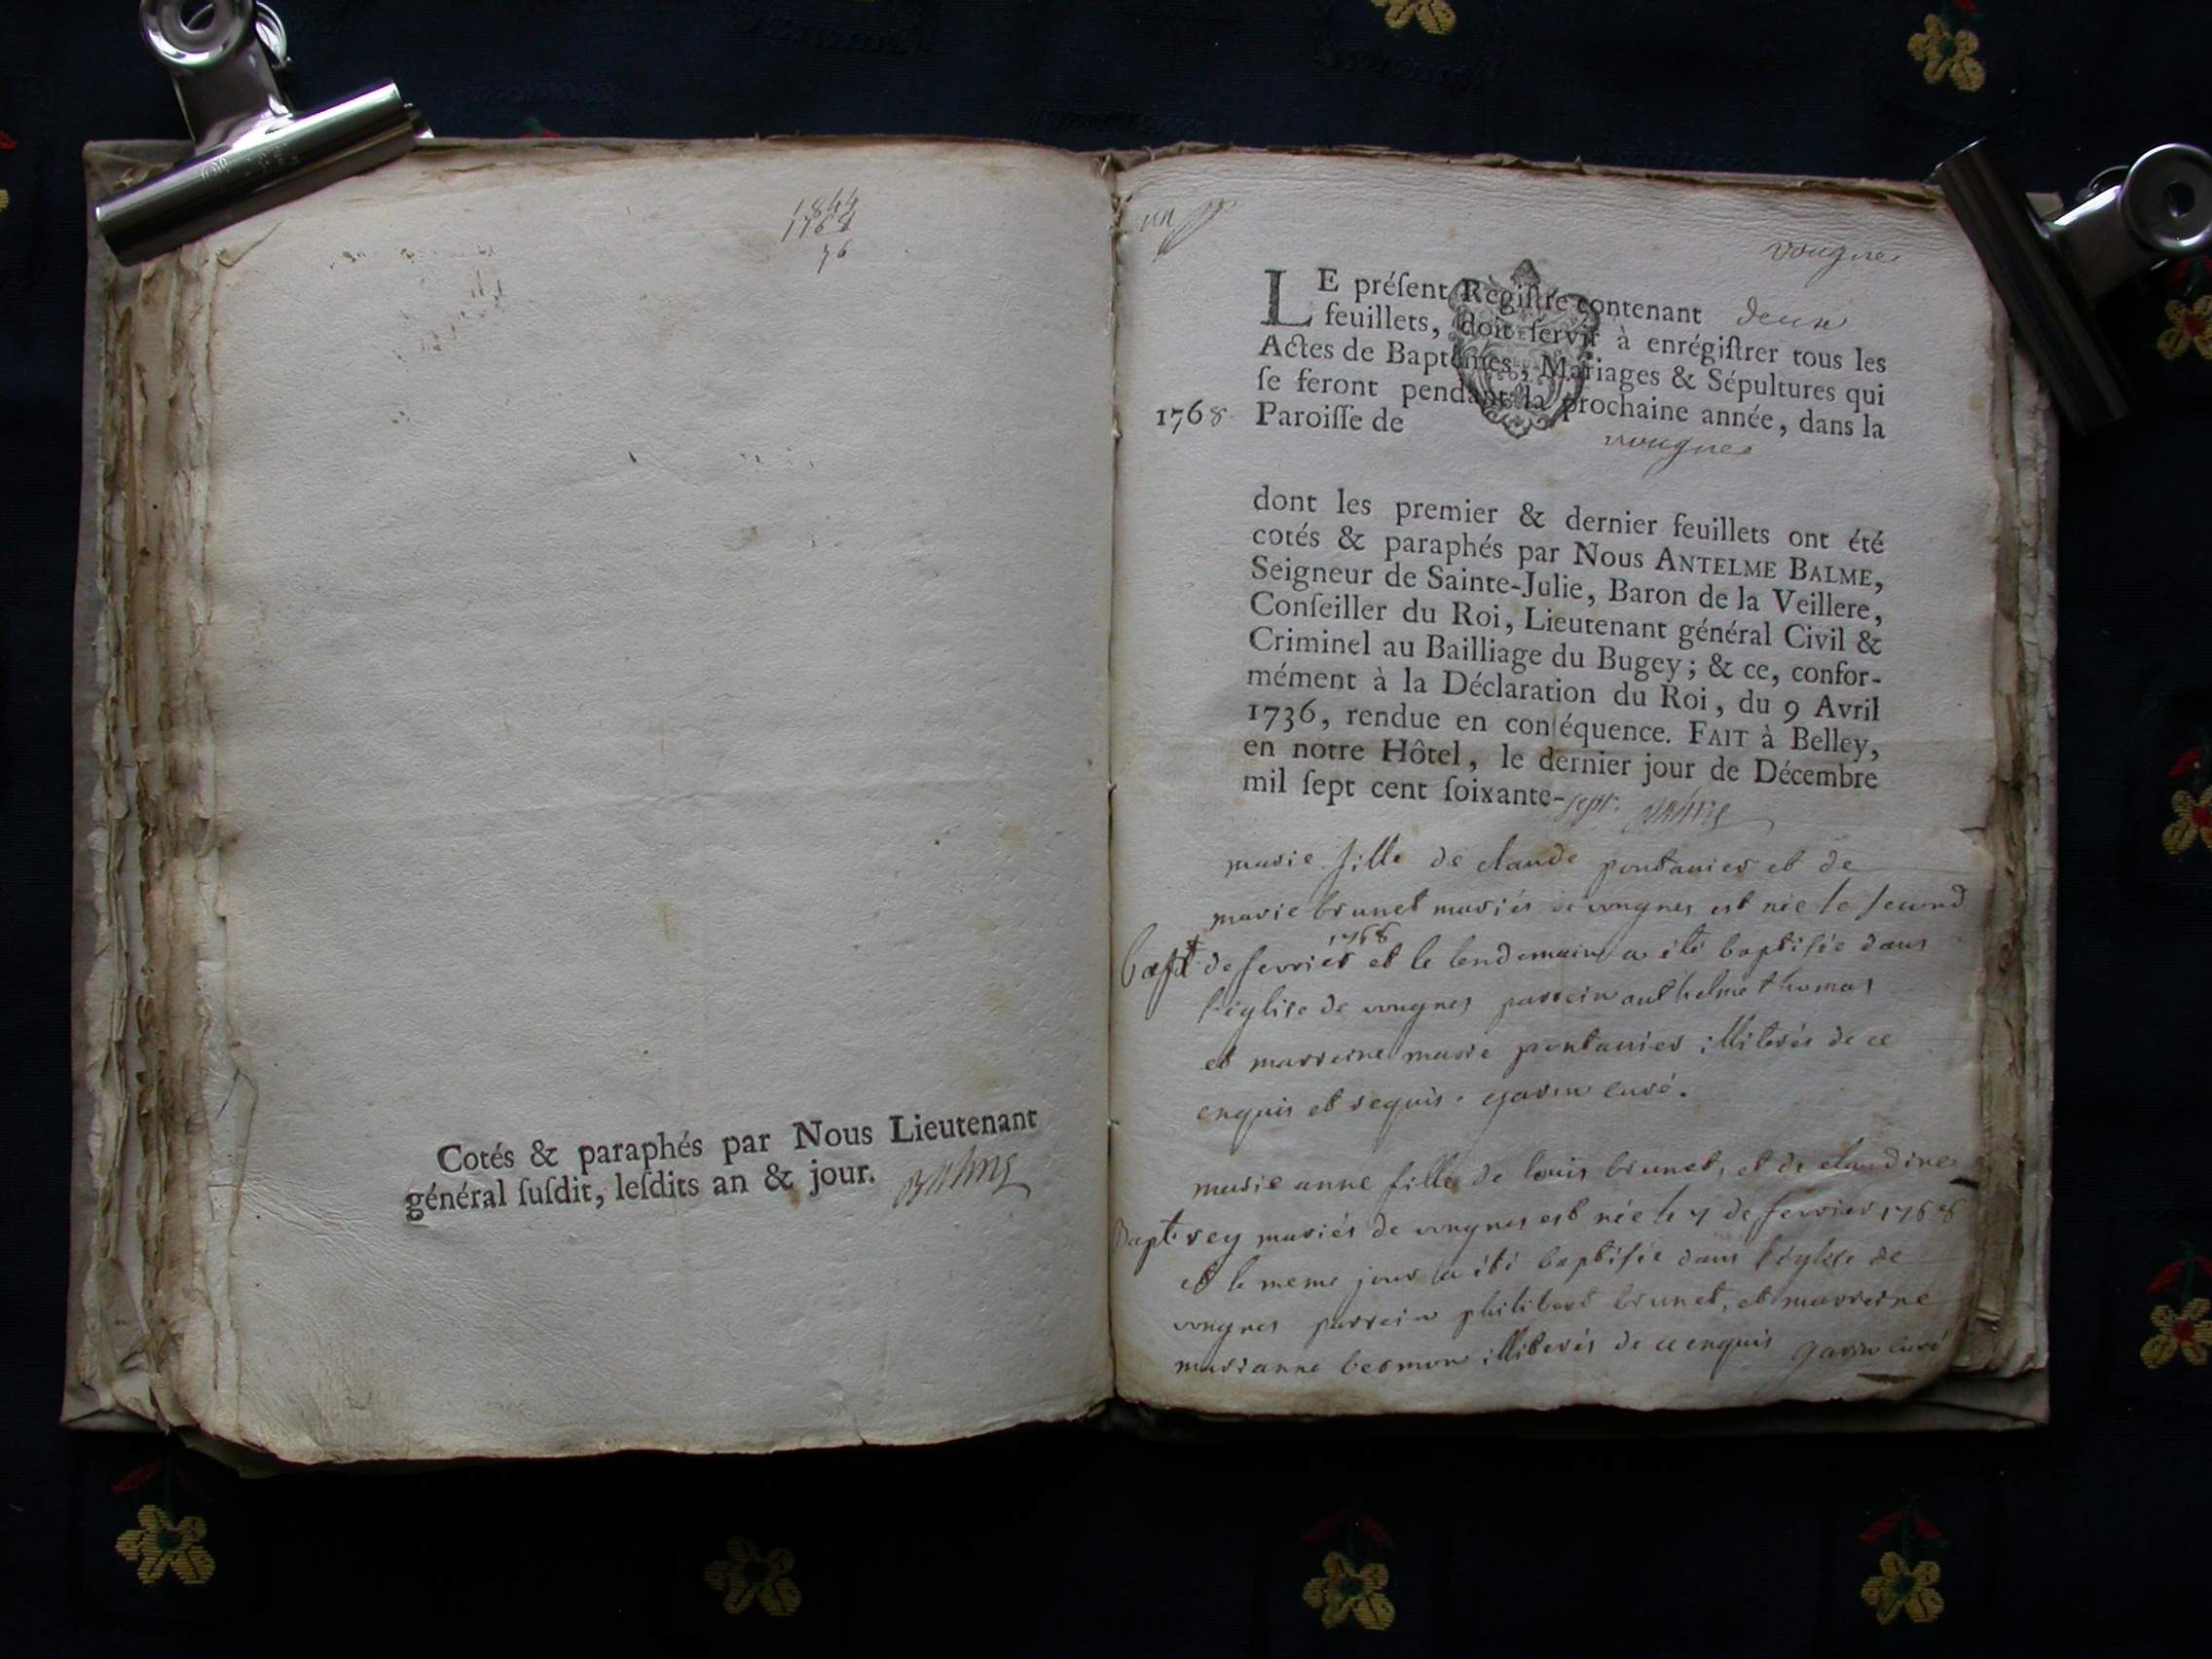 1844
1768
76
Cotés & paraphés par Nous Lieutenant
général ſuſdit, leſdits an & jour. Balme
un
vougnes
LE préſent Regiſtre contenant deux
feuillets, doit ſervir à enrégiſtrer tous les
Actes de Baptêmes, Mariages & Sépultures qui
ſe feront pendant la prochaine année, dans la
1768 Paroiſſe de
vougnes
dont les premier & dernier feuillets ont été
cotés & paraphés par Nous ANTELME BALME,
Seigneur de Sainte-Julie, Baron de la Veillere,
Conſeiller du Roi, Lieutenant général Civil &
Criminel au Bailliage du Bugey; & ce, confor-
mément à la Déclaration du Roi, du 9 Avril
1736, rendue en conſéquence. FAIT à Belley,
en notre Hôtel, le dernier jour de Décembre
mil ſept cent ſoixante-sept. Balme
marie fille de claude pontanier et de
marie brunet mariés de vongnes est née le second
1768
bapt de fevrier et le lendemain a été baptisée dans
l'église de vongnes parrein anthelme thomas
et marreine marie pontanier illiterés de ce
enquis et requis. garin curé.
marie anne fille de louis brunet, et de claudine
Bapt rey mariés de vongnes est née le 7 de fevrier 1768
et le meme jour a été baptisée dans l'église de
vongnes parrein philibert brunet, et marreine
marianne bermon illiterés de ce enquis garin curé